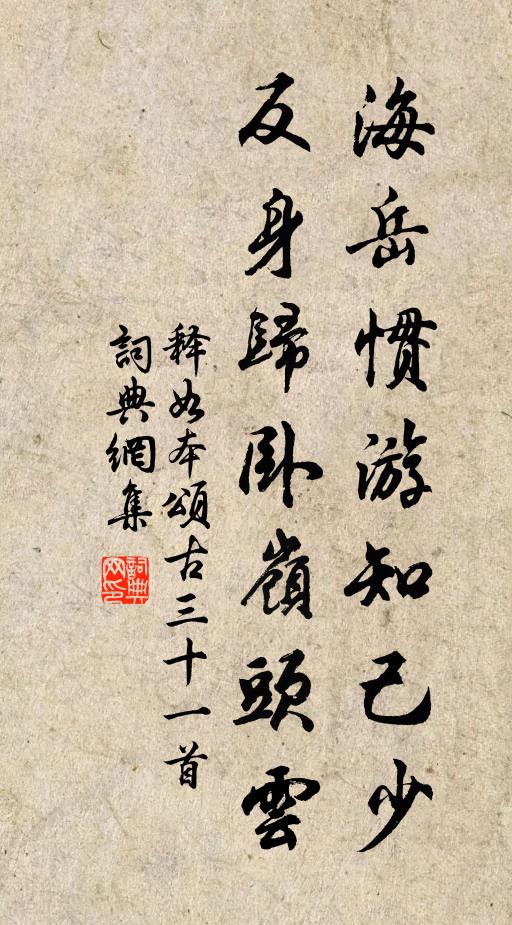 海岳惯游知己少
反身歸卧嶺頭雲
释如本頌古三十一首
詞典網集
詞典网印